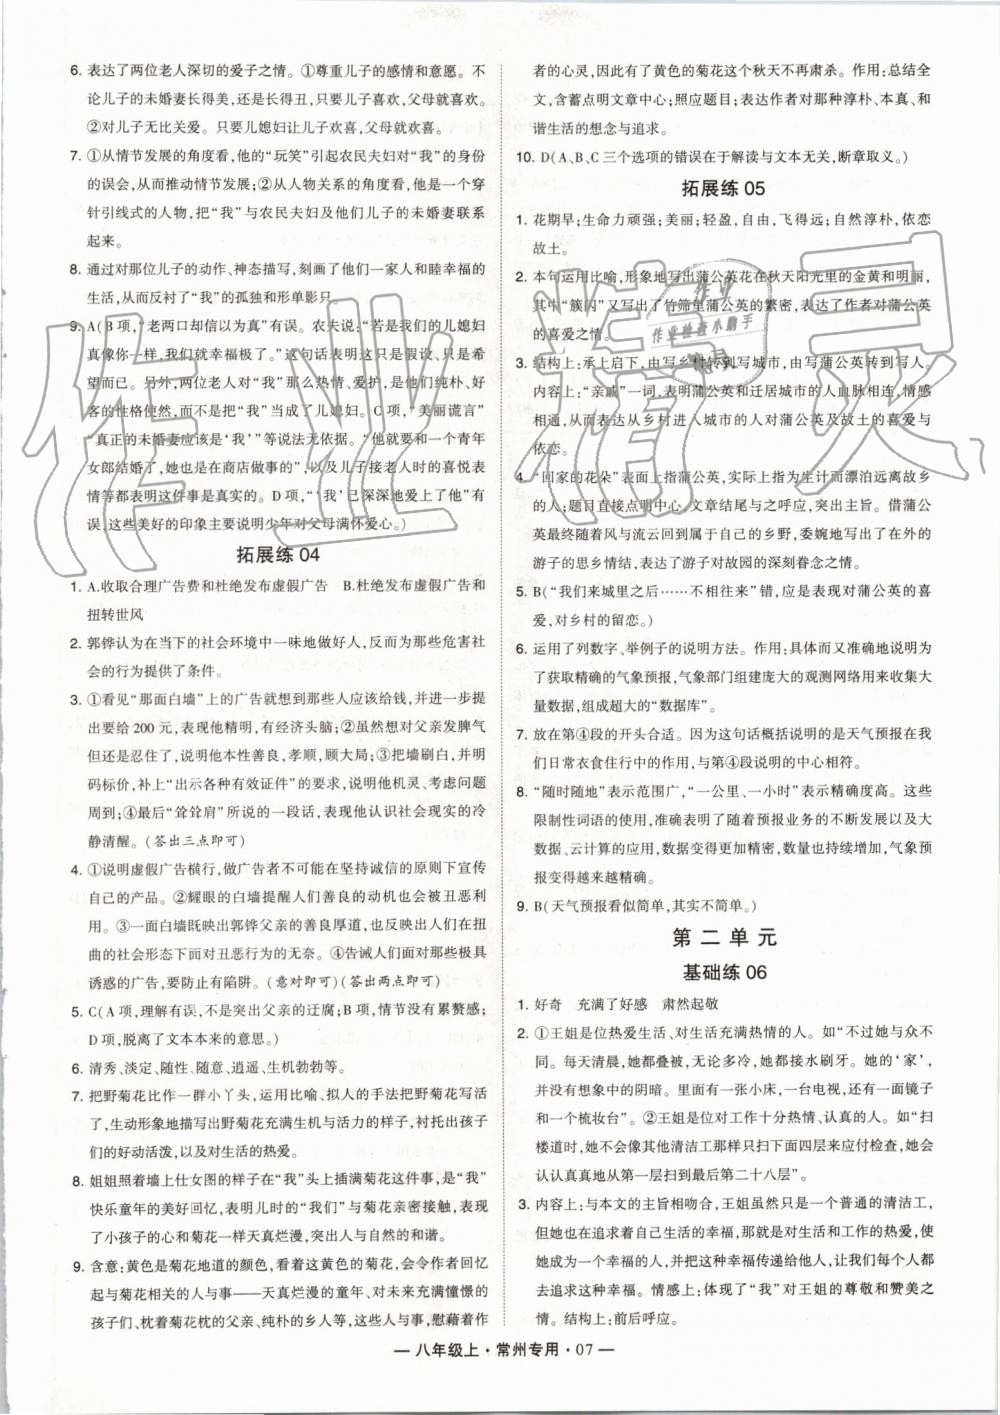 6. 表达了两位老人深切的爱子之情。①尊重儿子的感情和意愿。不
论儿子的未婚妻长得美,还是长得丑,只要儿子喜欢,父母就喜欢。
②对儿子无比关爱。只要儿媳妇让儿子欢喜,父母就欢喜。
7. ①从情节发展的角度看,他的“玩笑”引起农民夫妇对“我”的身份
的误会,从而推动情节发展;②从人物关系的角度看,他是一个穿
针引线式的人物,把“我”与农民夫妇及他们儿子的未婚妻联系
起来。
8. 通过对那位儿子的动作、神态描写,刻画了他们一家人和睦幸福的
生活,从而反衬了“我”的孤独和形单影只。
9. A(B项,“老两口却信以为真”有误。农夫说:“若是我们的儿媳妇
真像你一样,我们就幸福极了。”这句话表明这只是假设、只是希
望而已。另外,两位老人对“我”那么热情、爱护,是他们纯朴、好
客的性格使然,而不是把“我”当成了儿媳妇。C项,“美丽谎言”
“真正的未婚妻应该是‘我’”等说法无依据。“他就要和一个青年
女郎结婚了,她也是在商店做事的”,以及儿子接老人时的喜悦表
情等都表明这件事是真实的。D项,“‘我’已深深地爱上了他”有
误,这些美好的印象主要说明少年对父母满怀爱心。)
拓展练 04
1. A.收取合理广告费和杜绝发布虚假广告 B.杜绝发布虚假广告和
扭转世风
2. 郭铧认为在当下的社会环境中一味地做好人,反而为那些危害社
会的行为提供了条件。
3. ①看见“那面白墙”上的广告就想到那些人应该给钱,并进一步提
出要给200元,表现他精明,有经济头脑;②虽然想对父亲发脾气
但还是忍住了,说明他本性善良,孝顺,顾大局;③把墙刷白,并明
码标价,补上“出示各种有效证件”的要求,说明他机灵、考虑问题
周到;④最后“耸耸肩”所说的一段话,表现他认识社会现实的冷
静清醒。(答出三点即可)
4. ①说明虚假广告横行,做广告者不可能在坚持诚信的原则下宣传
自己的产品。②耀眼的白墙提醒人们善良的动机也会被丑恶利
用。③一面白墙既映出郭铧父亲的善良厚道,也反映出人们在扭
曲的背景下对丑恶行为的无奈。④告诫人们面对各种各样极具
诱惑的广告,要防止有陷阱。(意对即可)(答出两点即可)
5. C(A项,理解有误,不是突出父亲的迂腐;B项,情节没有累赘感;
D项,脱离了文本本来的意思。)
6. 清秀、淡定、随性、随意、逍遥、生机勃勃等。
7. 把野菊花比作一群小丫头,运用比喻、拟人的手法把野菊花写活
了,生动形象地描写出野菊花充满生机与活力的样子,衬托出孩子
们的好动活泼,以及对菊花的喜爱。
8. 姐姐照着墙上仕女图的样子在“我”头上插满菊花这件事,是“我”
快乐童年的美好回忆,表明儿时的“我们”与菊花亲密接触,表现
了小孩子的心和菊花一样天真烂漫,突出人对菊花的喜爱。
9. 含意:黄色是菊花地道的颜色,看着这黄色的菊花,会令作者回忆
起与菊花相关的人与事——天真烂漫的童年、对未来充满憧憬的
孩子们、枕着菊花枕的父亲、纯朴的乡人等,这些一直温暖、慰藉着作
者的心灵,因此有了黄色的菊花这个秋天不再肃杀。作用:总结全
文,含蓄点明文章中心;照应题目;表达作者对那种淳朴、本真、和
谐生活的想念与追求。
10. D(A、B、C三个选项的错误在于解读与文本无关,断章取义。)
拓展练 05
1. 花期早;生命力顽强;美丽;轻盈,自由,飞得远;自然淳朴,依恋
故土。
2. 本句运用比喻,形象地写出蒲公英花在秋天阳光里的金黄和明丽,
其中“簇闪”又写出了竹筛里蒲公英的繁密,表达了作者对蒲公英
的喜爱之情。
3. 结构上:承上启下,由写乡村转到写城市,由写蒲公英转到写人。
内容上:“亲戚”一词,表明蒲公英和迁居城市的人血脉相连,情感
相通,从而表达从乡村进入城市的人对蒲公英及故土的喜爱与
依恋。
4. “回家的花朵”表面上指蒲公英,实际上指为生计而漂泊远离故乡
的人;题目直接点明中心,文章结尾与之呼应,突出主旨。借蒲公
英最终随着风与流云回到自己的乡野,委婉地写出了在外的
游子的思乡情结,表达了游子对故园的深刻眷念之情。
5. B(“我们来城里之后……不相往来”错,应是表现对蒲公英的喜
爱,对乡村的留恋。)
6. 运用了列数字、举例子的说明方法。作用:具体准确地说明了为
了获取精确的气象预报,气象部门组建庞大的观测网络用来收集
大量数据,组成超大的“数据库”。
7. 放在第④段的开头合适。因为这句话概括说明的是天气预报在我
们日常衣食住行中的作用,与第④段说明的中心相符。
8. “随时随地”表示范围广,“一公里、一小时”表示精确度高。这些
限制性词语的使用,准确表明了随着预报业务的不断发展以及大
数据、云计算的应用,数据会更加精密,数量也持续增加,气象预
报变得越来越精确。
9. B(天气预报看似简单,其实不简单。)
第 二 单 元
基础练 06
1. 好奇 充满了好感 肃然起敬
2. ①王姐是位热爱生活、对生活充满热情的人。如“不过她与众不
同。每天清晨,她都叠被,无论多冷,她都接水刷牙。她的‘家’,
并没有想象中的阴暗。里面有一张小床,一台电视,还有一面镜子
和一个梳妆台”。②王姐是位对工作十分热情、认真的人。如“扫
楼道时,她不会像其他清洁工那样只扫下面四层来应付检查,她会
认认真真地从第一层扫到最后第二十八层”。
3. 内容上:与本文的主旨相吻合,王姐虽然只是一个普通的清洁工,
但她也在追求着自己生活的幸福,那就是对生活和工作的热爱,使
她成为一个幸福的人,并把这种幸福传递给他人,让我们每个人都
去追求幸福。情感上:体现了“我”对王姐的尊敬和赞美之
情。结构上:前后呼应。
— 八年级上·常州专用·07 —
作业精灵
作业检查小助手